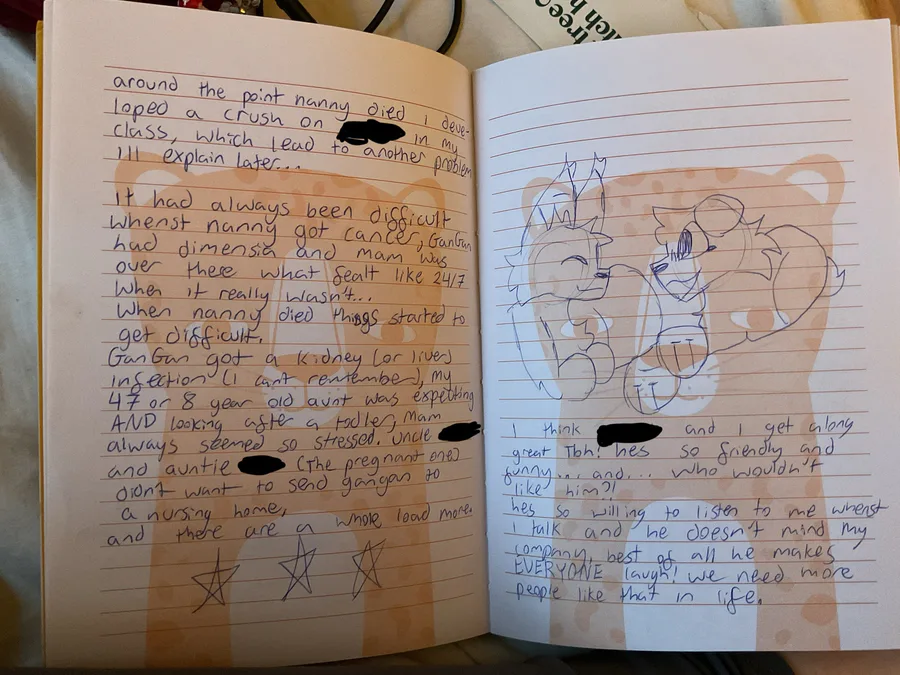 tree
tch h
around the point nanny died I deve-
loped a crush on in my
class, which lead to another problem
I'll explain later...
it had always been difficult
whenst nanny got cancer, GanGan
had dimensia and mam was
over there what fealt like 24/7
when it really wasn't...
When nanny died things started to
get difficult.
GanGan got a kidney (or liver)
infection (I cant remember), my
47 or 8 year old aunt was expetting
AND looking after a todler, mam
always seemed so stressed. Uncle
and auntie (The pregnant one)
didn't want to send gangan to
a nursing home,
and there are a whole load more.
I think and I get along
great Tbh! hes so friendly and
funny... and... who wouldn't
like him?!
hes so willing to listen to me whenst
I talk and he doesn't mind my
company, best of all he makes
EVERYONE laugh! we need more
people like that in life.